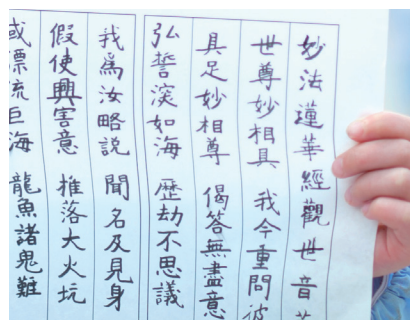 妙法蓮華經觀世音菩
世尊妙相具 我今重問彼
具足妙相尊 偈答無盡意
弘誓深如海 歷劫不思議
我為汝略說 聞名及見身
假使興害意 推落大火坑
或漂流巨海 龍魚諸鬼難